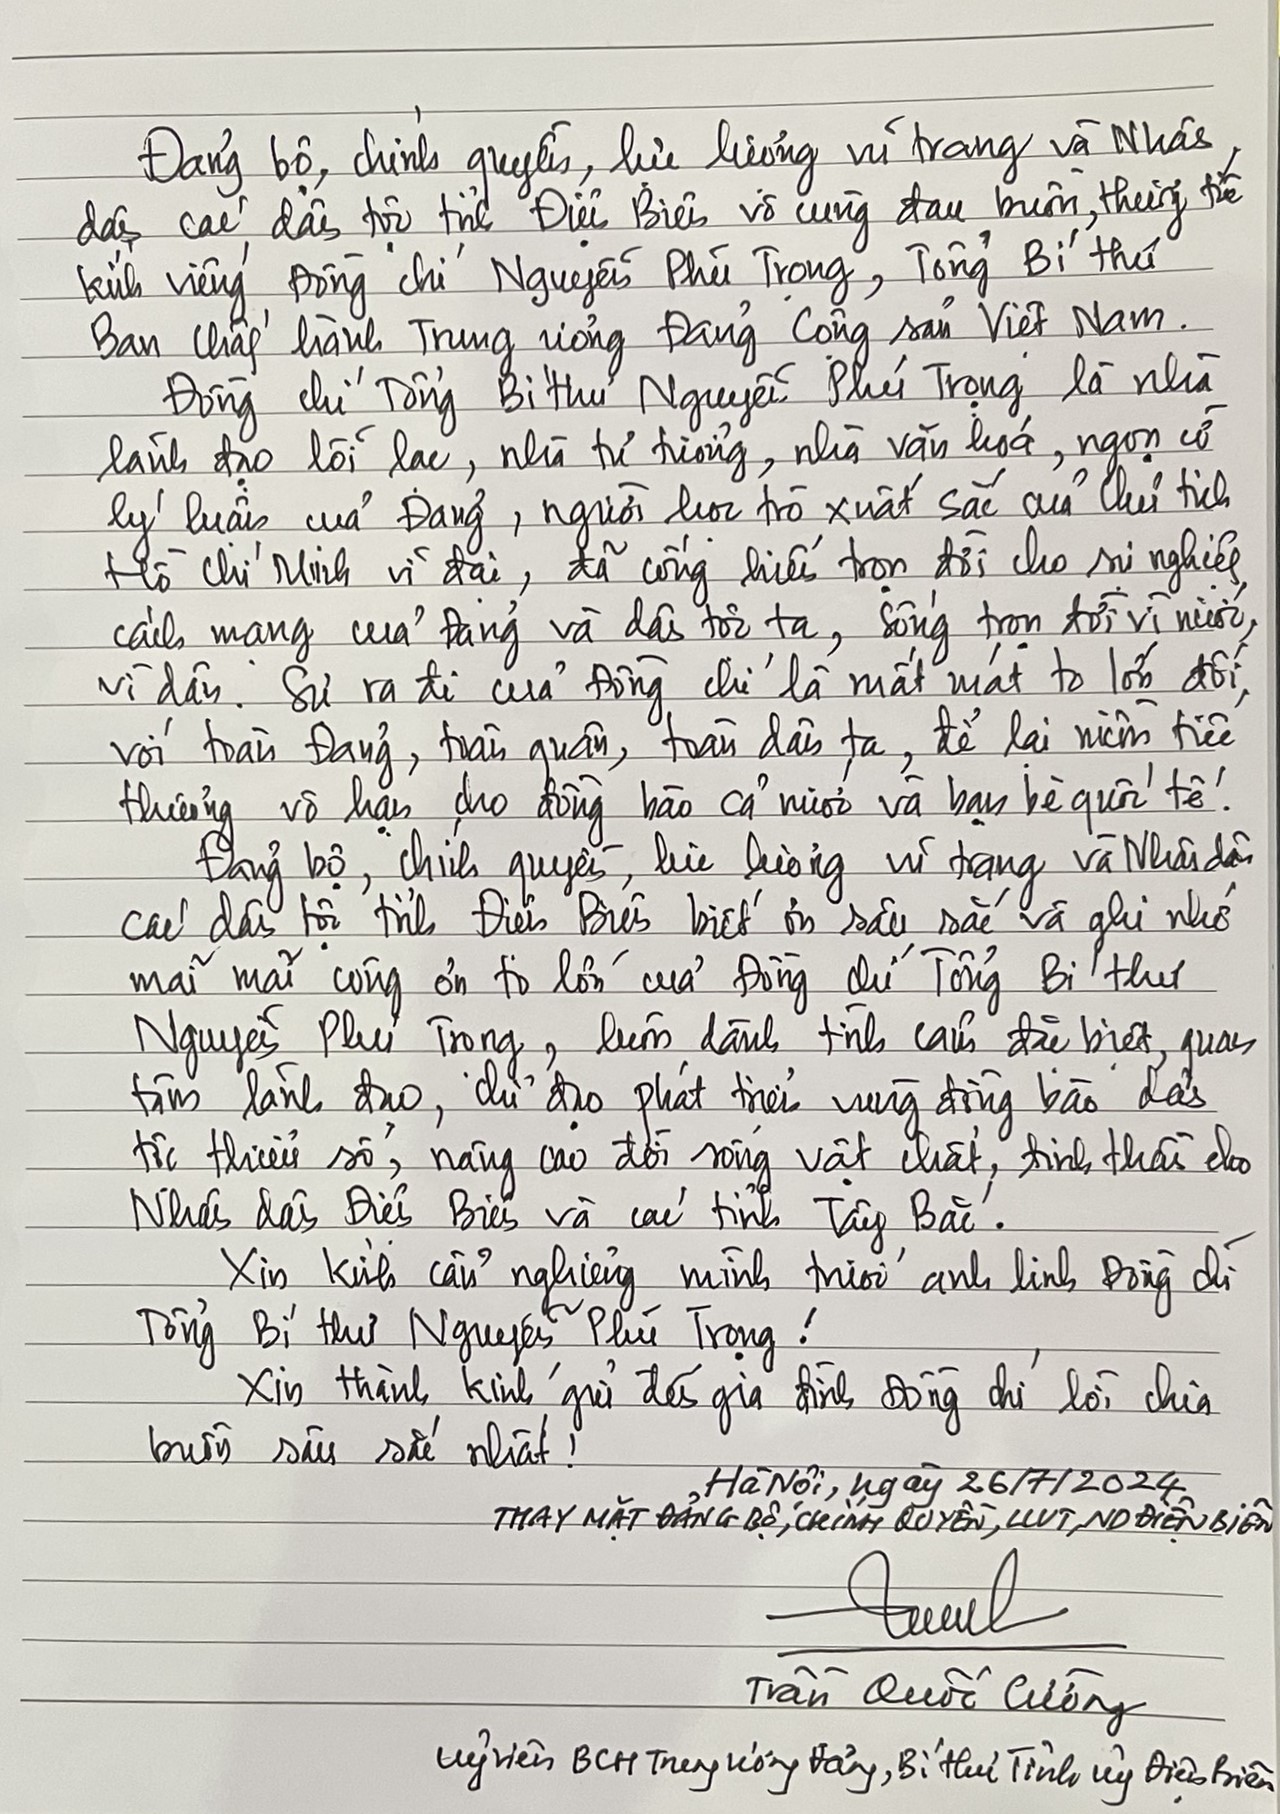 Đảng bộ, chính quyền, lực lượng vũ trang và Nhân
dân các dân tộc tỉnh Điện Biên vô cùng đau buồn, thương tiếc
kính viếng Đồng chí Nguyễn Phú Trọng, Tổng Bí thư
Ban Chấp hành Trung ương Đảng Cộng sản Việt Nam.
Đồng chí Tổng Bí thư Nguyễn Phú Trọng là nhà
lãnh đạo lỗi lạc, nhà tư tưởng, nhà văn hoá, ngọn cờ
lý luận của Đảng, người học trò xuất sắc của Chủ tịch
Hồ Chí Minh vĩ đại, đã cống hiến trọn đời cho sự nghiệp
cách mạng của Đảng và dân tộc ta, sống trọn đời vì nước,
vì dân. Sự ra đi của Đồng chí là mất mát to lớn đối
với toàn Đảng, toàn quân, toàn dân ta, để lại niềm tiếc
thương vô hạn cho đồng bào cả nước và bạn bè quốc tế.
Đảng bộ, chính quyền, lực lượng vũ trang và Nhân dân
các dân tộc tỉnh Điện Biên biết ơn sâu sắc và ghi nhớ
mãi mãi công ơn to lớn của Đồng chí Tổng Bí thư
Nguyễn Phú Trọng, luôn dành tình cảm đặc biệt, quan
tâm lãnh đạo, chỉ đạo phát triển vùng đồng bào dân
tộc thiểu số, nâng cao đời sống vật chất, tinh thần cho
Nhân dân Điện Biên và các tỉnh Tây Bắc.
Xin kính cẩn nghiêng mình trước anh linh Đồng chí
Tổng Bí thư Nguyễn Phú Trọng!
Xin thành kính gửi đến gia đình Đồng chí lời chia
buồn sâu sắc nhất!
Hà Nội, ngày 26/7/2024
THAY MẶT ĐẢNG BỘ, CHÍNH QUYỀN, LLVT, ND ĐIỆN BIÊN
Trần Quốc Cường
Uỷ viên BCH Trung ương Đảng, Bí thư Tỉnh uỷ Điện Biên